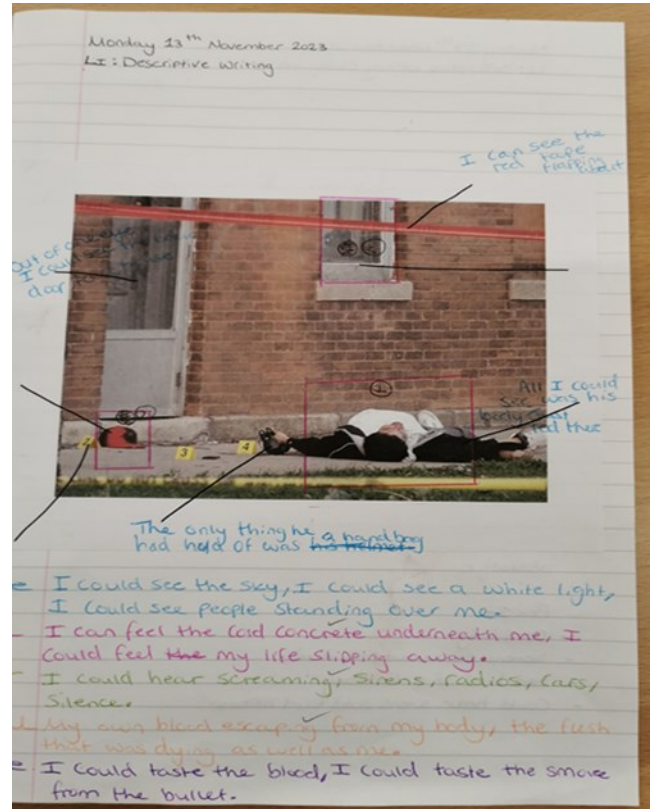 Monday 13th November 2023
LI: Descriptive Writing
I can see the
red tape
flapping about
out of one eye
I could see the
door
All I could
see was his
body just
The only thing he a handbag
had hold of was his helmet
1
2
3
4
e I could see the sky, I could see a white light,
I could see people standing over me.
I can feel the cold concrete underneath me, I
could feel the my life slipping away.
I could hear screaming, sirens, radios, cars,
silence.
My own blood escaping from my body, the flesh
that was dying as well as me.
e I could taste the blood, I could taste the smoke
from the bullet.